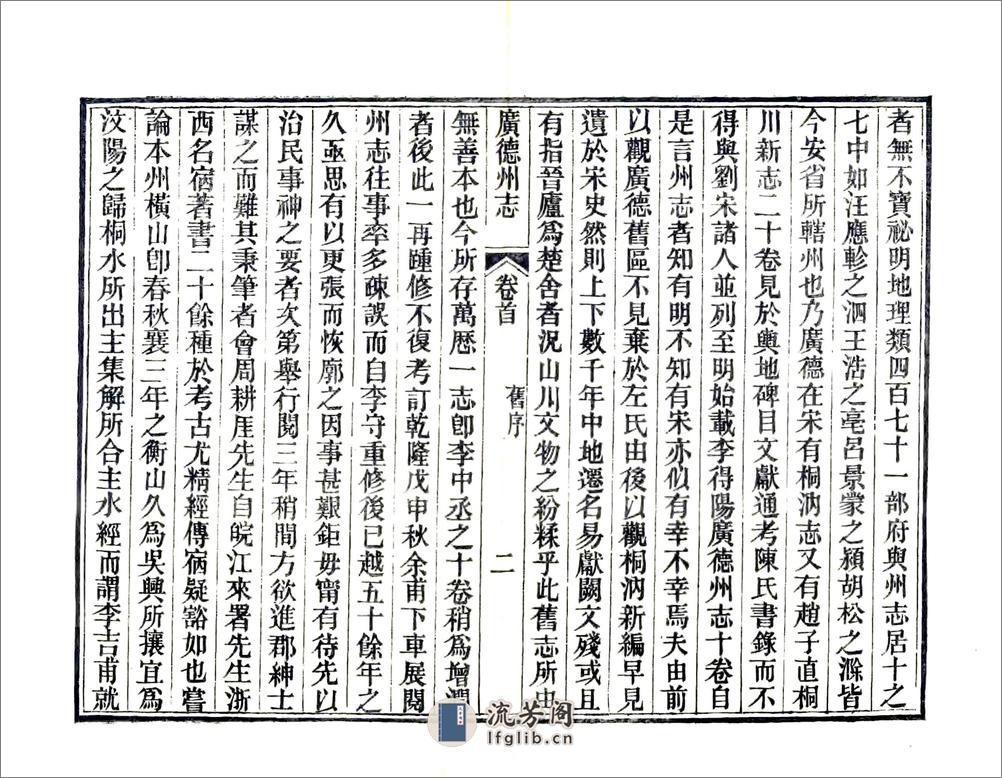 者無不寶祕明地理類四百七十一部府與州志居十之
七中如汪應軫之泗王浩之亳呂景蒙之潁胡松之滁皆
今安省所轄州也乃廣德在宋有桐汭志又有趙子直桐
川新志二十卷見於輿地碑目文獻通考陳氏書錄而不
得與劉宋諸人並列至明始載李得陽廣德州志十卷自
是言州志者知有明不知有宋亦似有幸不幸焉夫由前
以觀廣德舊區不見棄於左氏由後以觀桐汭新編早見
遺於宋史然則上下數千年中地遷名易獻闕文殘或且
有指晉廬爲楚舍者況山川文物之紛糅乎此舊志所由
廣德州志
卷首
舊序
二
無善本也今所存萬歷一志卽李中丞之十卷稍爲增潤
者後此一再踵修不復考訂乾隆戊申秋余甫下車展閱
州志往事率多疎誤而自李守重修後已越五十餘年之
久亟思有以更張而恢廓之因事甚艱鉅毋甯有待先以
治民事神之要者次第舉行閱三年稍間方欲進郡紳士
謀之而難其秉筆者會周耕厓先生自皖江來署先生浙
西名宿著書二十餘種於考古尤精經傳宿疑豁如也嘗
論本州橫山卽春秋襄三年之衡山久爲吳興所攘宜爲
汶陽之歸桐水所出主集解所合主水經而謂李吉甫就
流芳阁
lfglib.cn